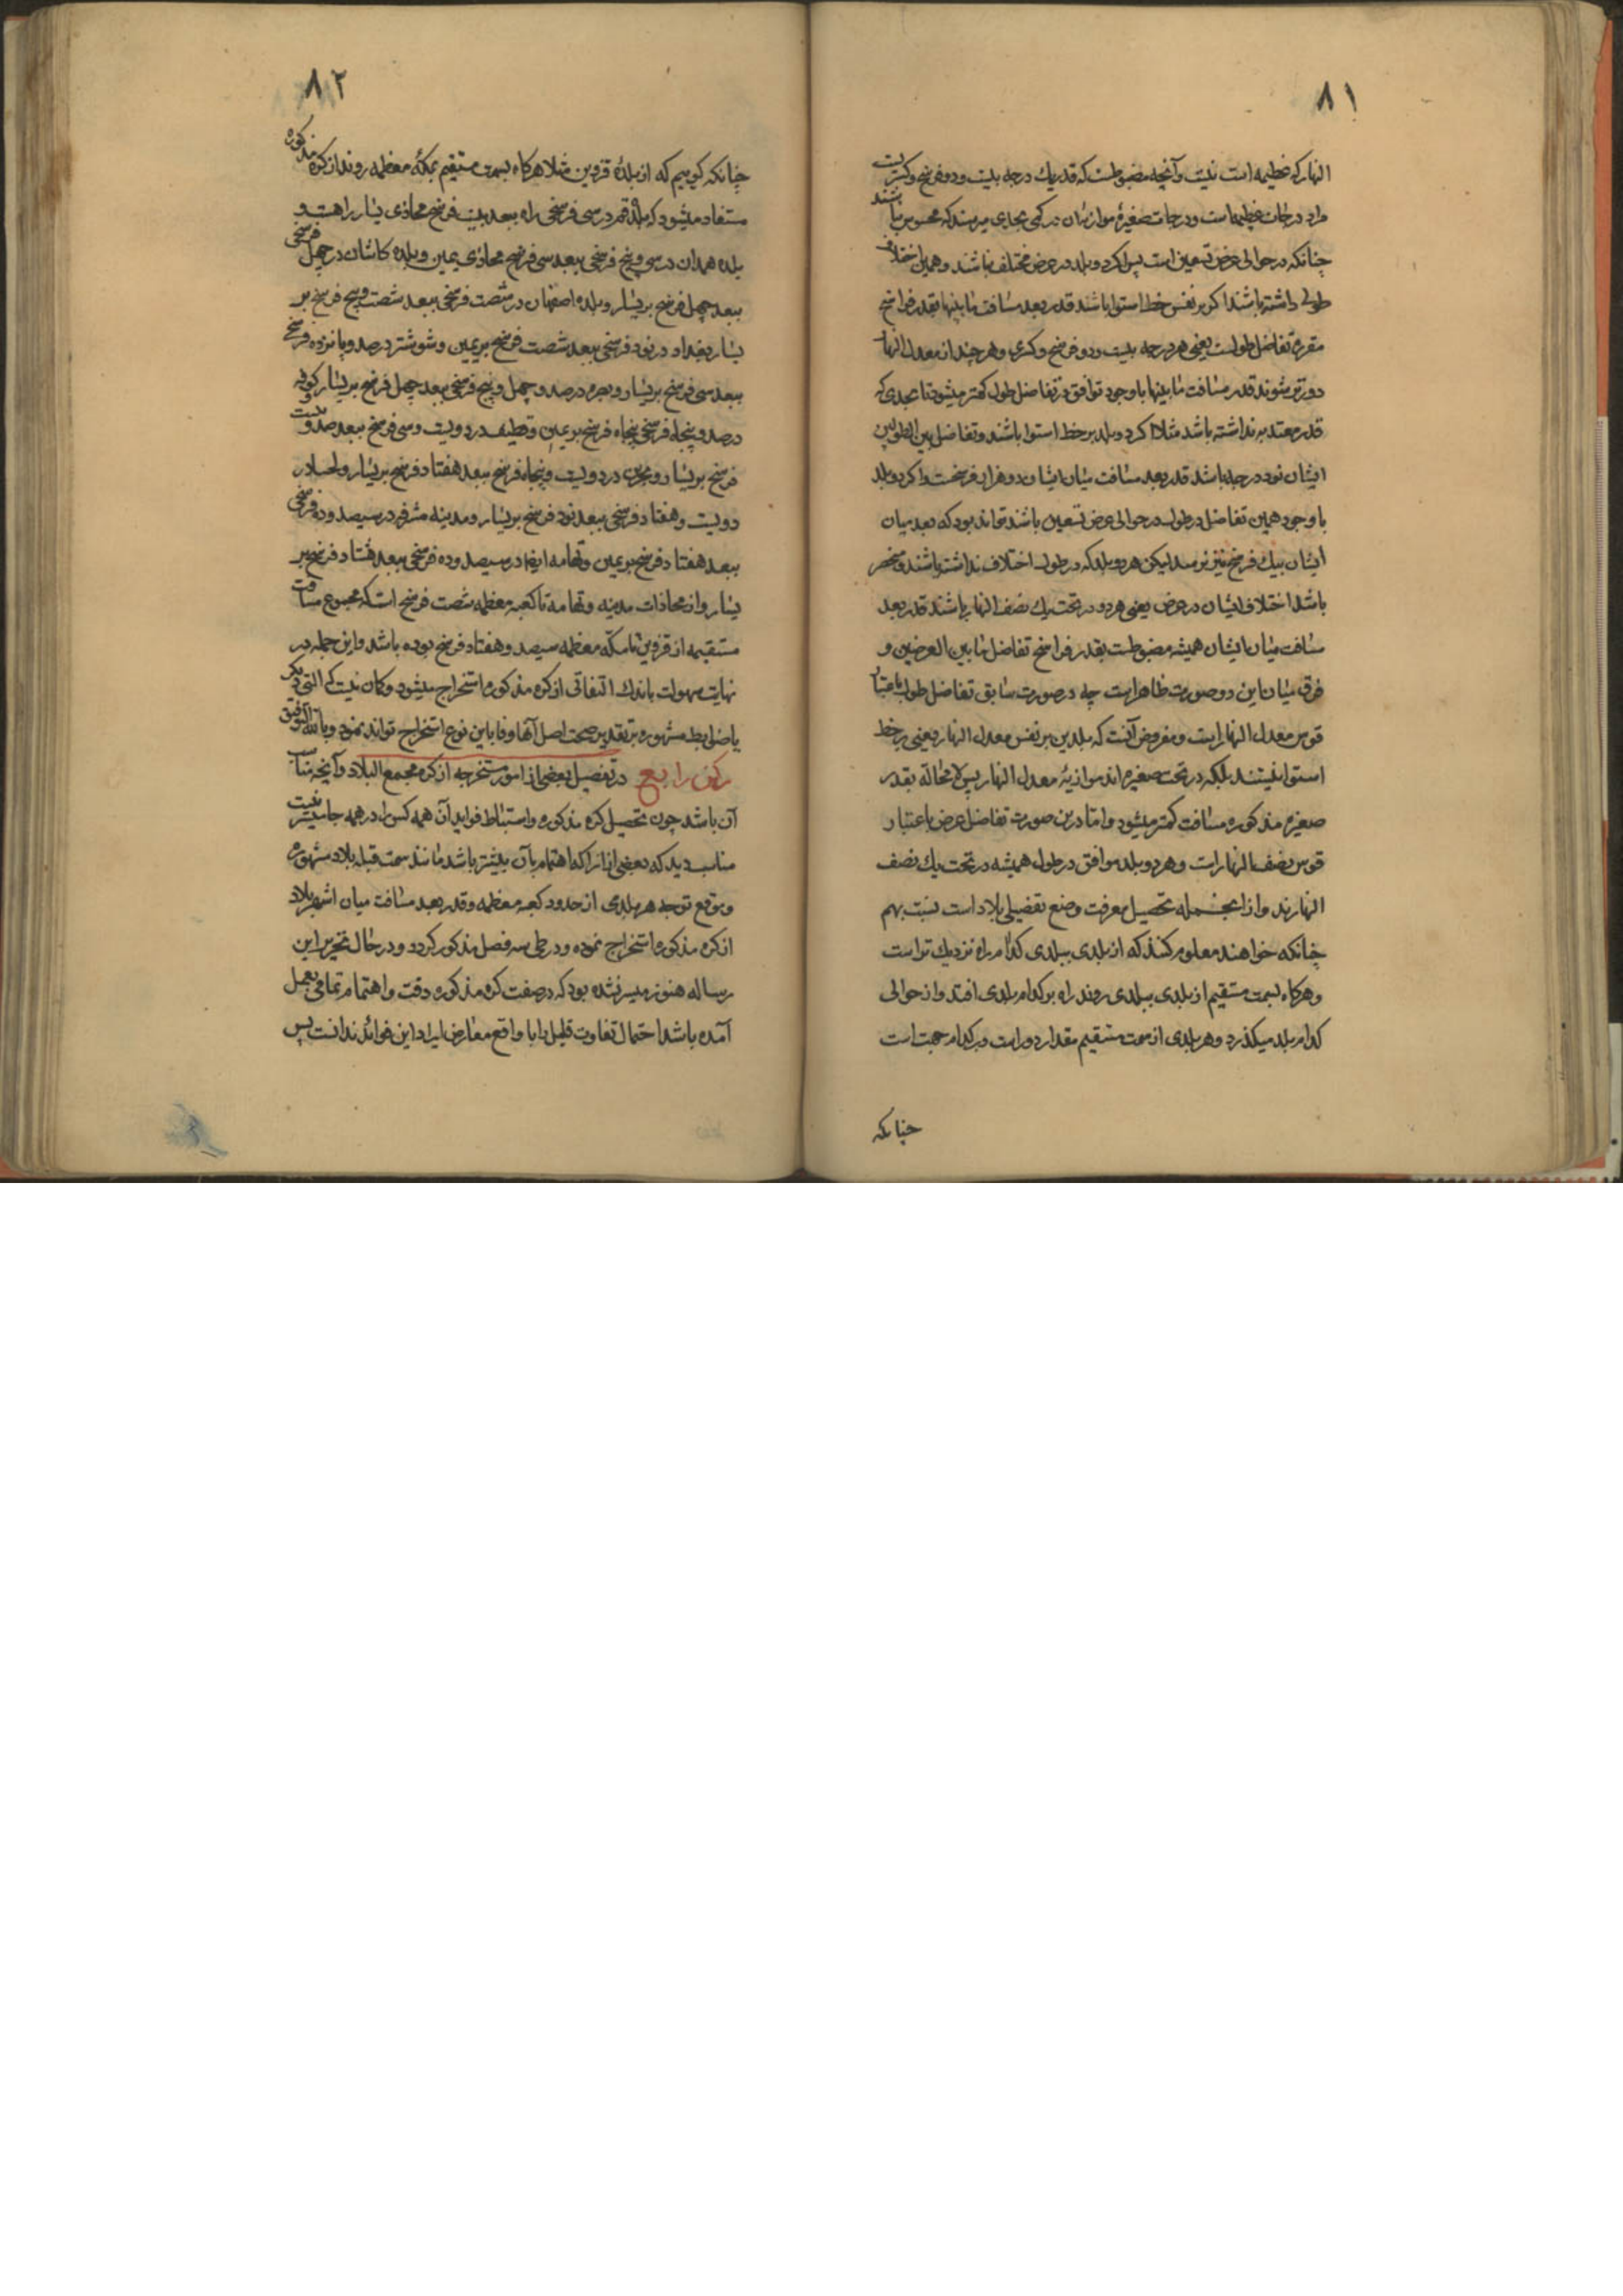 ٨١
النهار که عظیمه است نیست و آنچه مضبوطست که قدر یک درجه بیست و دو فرسخ و کسریست
مراد درجات عظیمهاست و درجات صغیرهٔ موازیان در کمی بحدی میرسند که محسوس نباشند
چنانکه در حوالی عرض تسعین است پس اکر دو بلد در عرض مختلف نباشند و همین اختلاف
طولی داشته باشند اکر بر نفس خط استوا باشند قدر بعد مسافت مابینها بقدر فراسخ
مقرره تفاضل طولست یعنی هر درجه بیست و دو فرسخ و کسری و هر چند از معدل النهار
دورتر شوند قدر مسافت مابینها با وجود توافق در تفاضل طول کمتر میشود تا بحدی که
قدر معتد به نداشته باشد مثلا اکر دو بلد بر خط استوا باشند و تفاضل بین الطولین
ایشان نود درجه باشد قدر بعد مسافت میان ایشان دو هزار فرسخست و اکر دو بلد
با وجود همین تفاضل در طول در حوالی عرض تسعین باشند تواند بود که بعد میان
ایشان بیک فرسخ نیز نرسد لیکن هر دو بلد که در طول اختلاف نداشته باشند و منحصر
باشد اختلاف ایشان در عرض یعنی هر دو در تحت یک نصف النهار باشند قدر بعد
مسافت میان ایشان همیشه مضبوطست بقدر فراسخ تفاضل مابین العرضین و
فرق میان این دو صورت ظاهراست چه در صورت سابق تفاضل طول باعتبار
قوس معدل النهار است و مفروض آنست که بلدین بر نفس معدل النهار یعنی بر خط
استوا نیستند بلکه در تحت صغیره اند موازیهٔ معدل النهار پس لا محاله بقدر
صغیره مذکوره مسافت کمتر میشود و اما درین صورت تفاضل عرض باعتبار
قوس نصف النهار است و هر دو بلد موافق در طول همیشه در تحت یک نصف
النهارند و از انجمله تحصیل معرفت وضع تفضیلی بلاد است نسبت بهم
چنانکه خواهند معلوم کنند که از بلدی ببلدی کدام راه نزدیک تر است
و هرکاه بسمت مستقیم از بلدی ببلدی روند راه بر کدام بلدی افتد و از حوالی
کدام بلد میکذرد و هر بلدی از سمت مستقیم مقدار دور است و بر کدام جهت است
چنانکه
٨٢
چنانکه کوییم که از بلدهٔ قزوین مثلا هرکاه بسمت مستقیم بمکهٔ معظمه روند از کره مذکوره
مستفاد میشود که بلدهٔ قم در سی فرسخی راه ببعد بیست فرسخ محاذی یسار راهست و
بلده همدان در سی و پنج فرسخی ببعد سی فرسخ محاذی یمین و بلده کاشان در چهل فرسخی
ببعد چهل فرسخ بر یسار و بلده اصفهان در شصت فرسخی ببعد شصت و پنج فرسخ بر
یسار بغداد در نود فرسخی ببعد شصت فرسخ بر یمین و شوشتر در صد و پانزده فرسخ
ببعد سی فرسخ بر یسار و بصره در صد و چهل و پنج فرسخی ببعد چهل فرسخ بر یسار کوفه
در صد و پنجاه فرسخی پنجاه فرسخ بر یمین و قطیف در دویست و سی فرسخ ببعد صد و بیست
فرسخ بر یسار و بحرین در دویست و پنجاه فرسخ ببعد هفتاد فرسخ بر یسار و لحسا در
دویست و هفتاد فرسخی ببعد نود فرسخ بر یسار و مدینه مشرفه در سیصد و ده فرسخی
ببعد هفتاد فرسخ بر یمین و تهامه ایضا در سیصد و ده فرسخی ببعد هشتاد فرسخ بر
یسار و از محاذات مدینه و تهامه تا کعبه معظمه شصت فرسخ است که مجموع مسافت
مستقیمه از قزوین تا مکّه معظمه سیصد و هفتاد فرسخ بوده باشد و این جمله در
نهایت سهولت باندک التفاتی از کره مذکوره استخراج میشود و کمان نیست که التی دیکر
یا ضوابط مشهوره بر تقدیر صحت اصل آنها وفا باین نوع استخراج تواند نمود و بالله التوفیق
رکن رابع در تفصیل بعضی از امور مستخرجه از کره مجمع البلاد و آنچه مناسب
آن باشد چون تحصیل کره مذکوره و استنباط فواید آن همه کس را در همه جا میسر نیست
مناسب دید که بعضی از انرا که اهتمام بآن بیشتر باشد مانند سمت قبله بلاد مشهوره
و موقع توجه هر بلدی از حدود کعبه معظمه و قدر بعد مسافت میان اشهر بلاد
از کره مذکوره استخراج نموده و در طی سه فصل مذکور کردد و در حال تحریر این
رساله هنوز میسر نشده بود که در صفت کره مذکوره دقت و اهتمام تمامی بعمل
آمده باشد احتمال تفاوت قلیل را با واقع معارض ایراد این فوائد ندانست پس